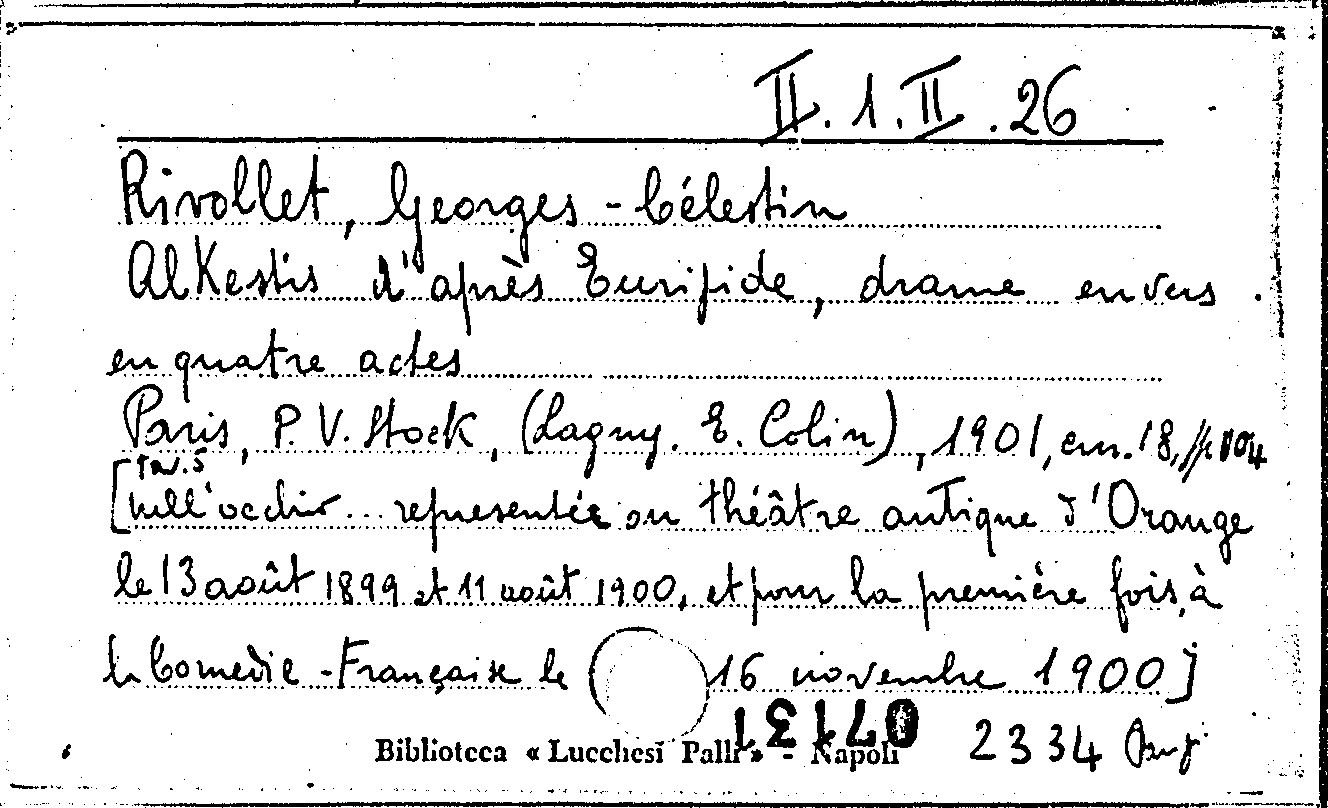 II. 1. II. 26
Rivollet, Georges-Célestin
Alkestis d'après Euripide, drame en vers
en quatre actes
Paris, P. V. Stock, (Lagny. E. Colin), 1901, cm. 18, pp. 104
tav. 5
[nell'occhio... representée au théâtre antique d'Orange
le 13 août 1899 et 11 août 1900, et pour la première fois, à
la Comedie-Française le 16 novembre 1900]
Biblioteca « Lucchesi Palli » - Napoli 2334